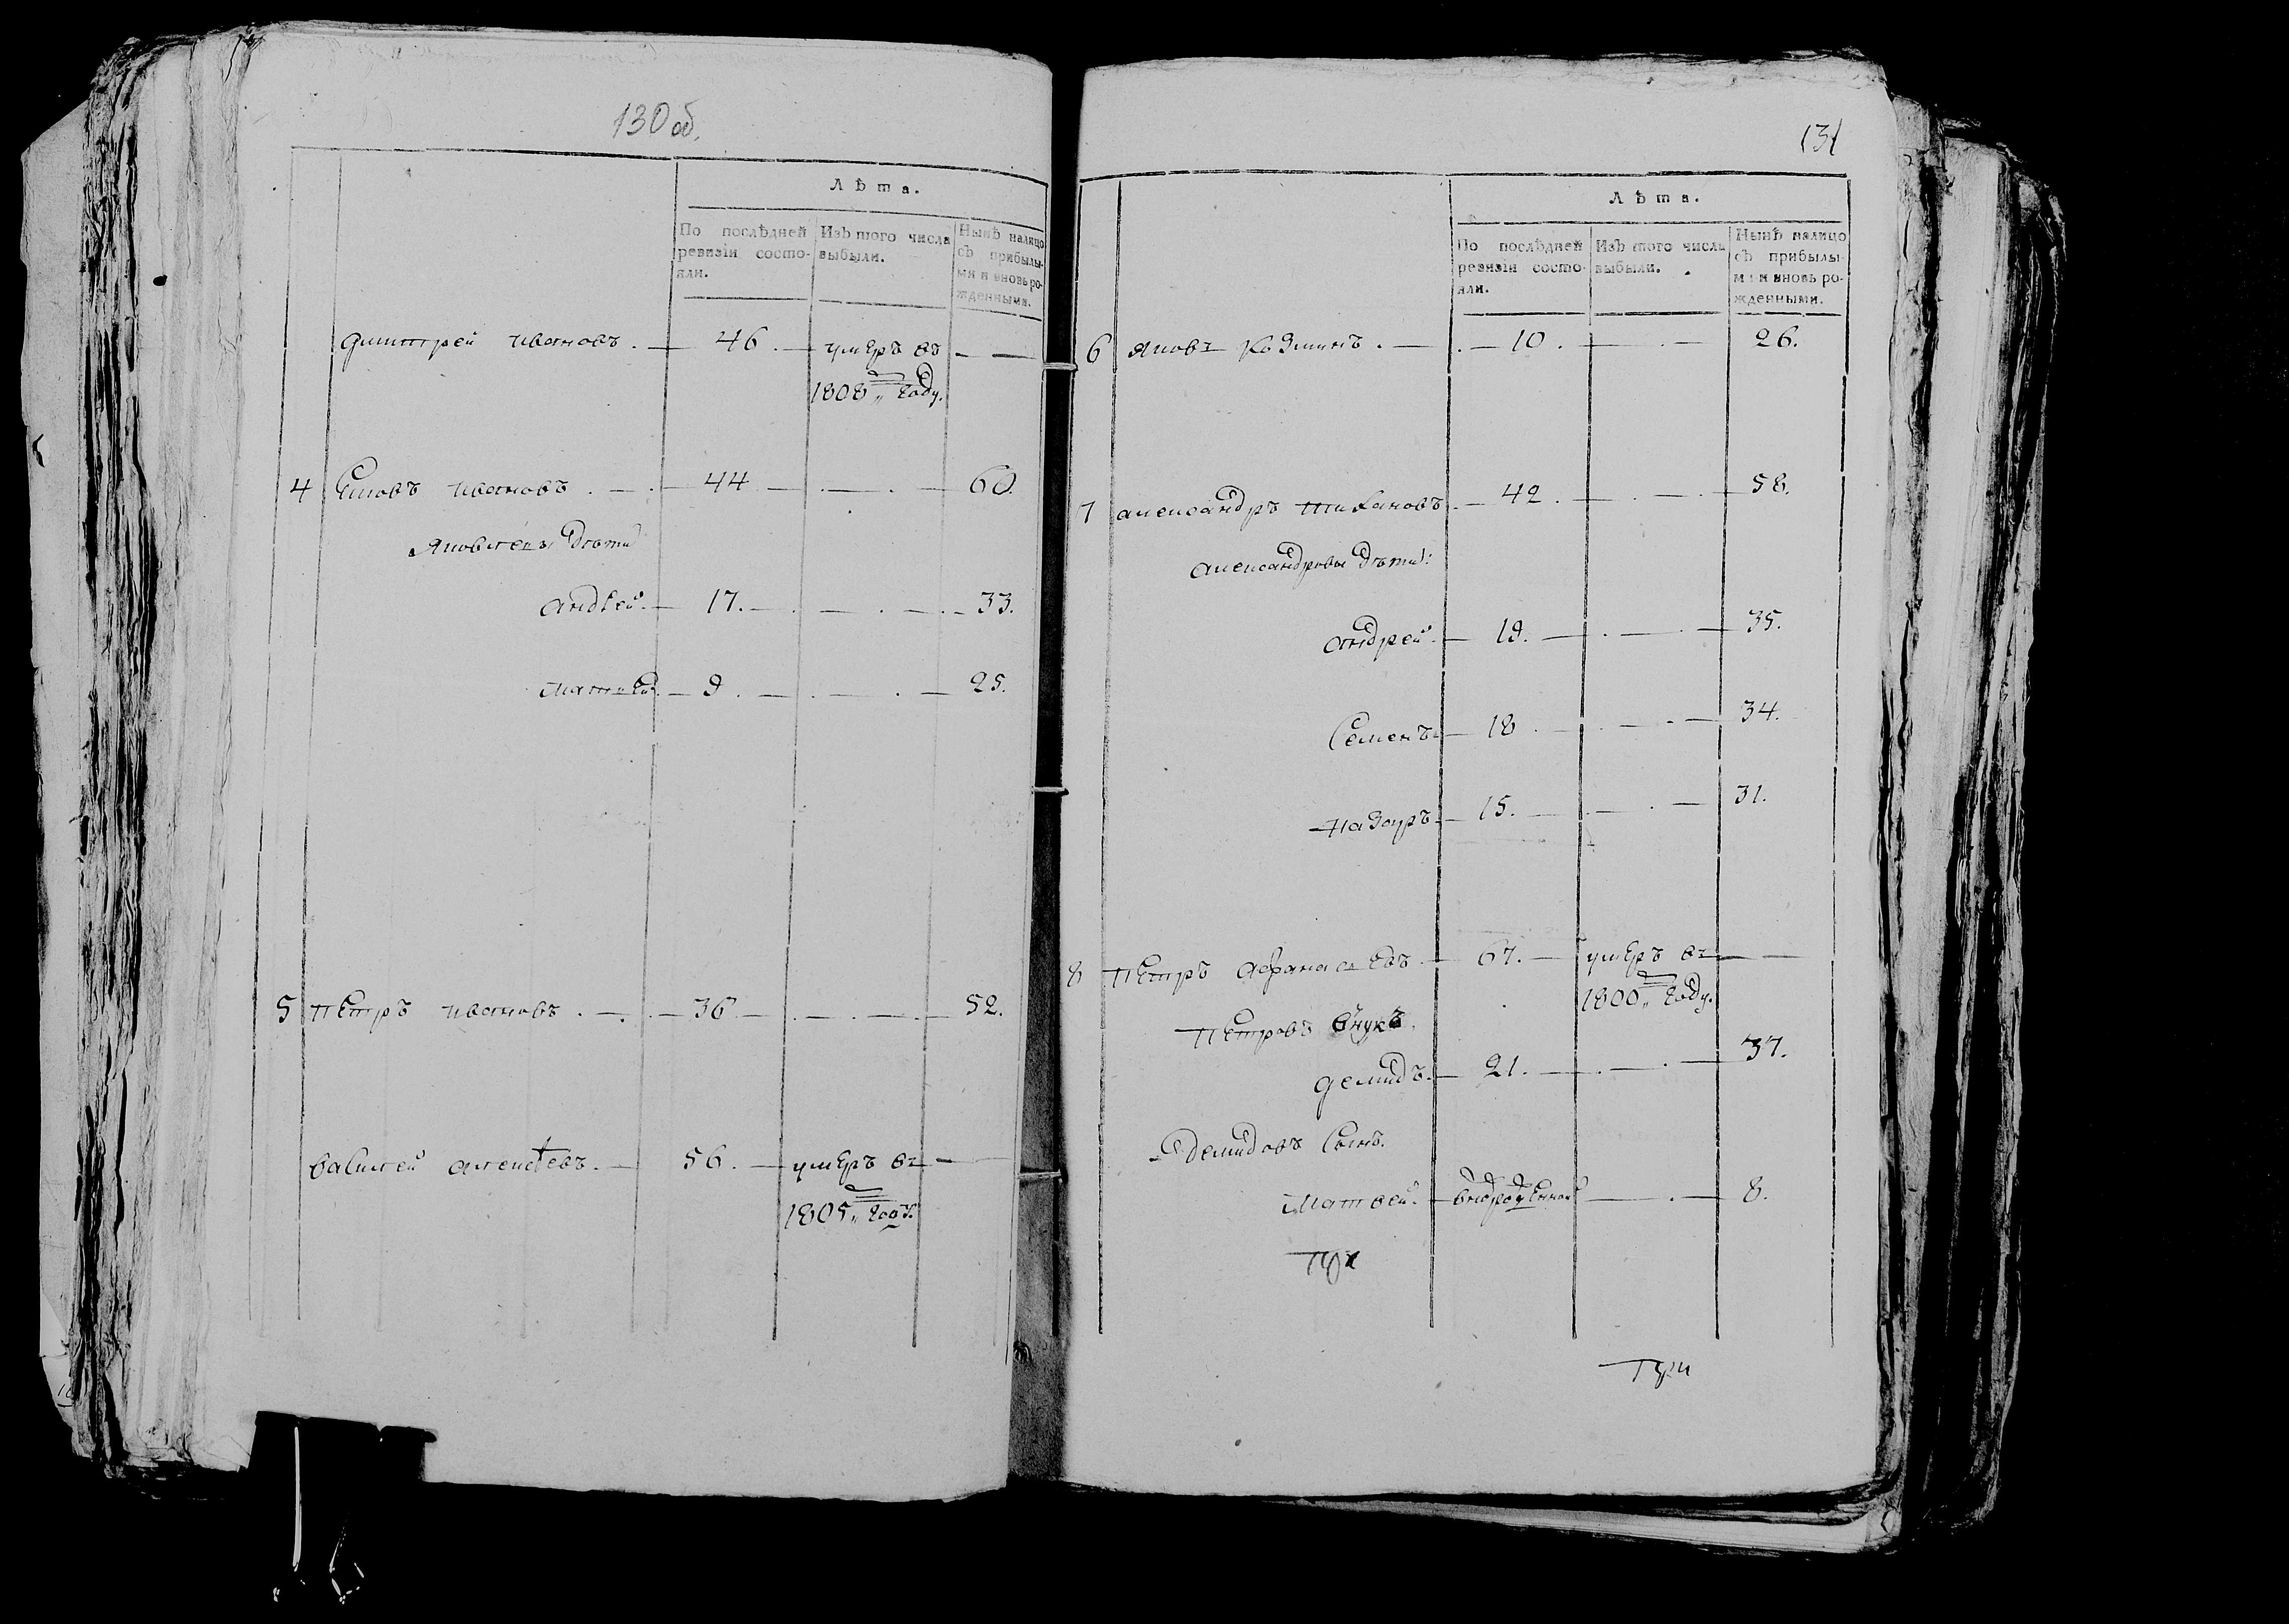 130 об.
Лѣта.
По послѣдней ревизіи состояли.
Изъ того числа выбыли.
Нынѣ налицо съ прибылыми и вновь рожденными.
Дмитрей Ивановъ. 46. умеръ въ
1808 году.
4 Яковъ Ивановъ. 44 60.
Яковлевы дѣти
Андрей. 17. 33.
Матвей. 9. 25.
5 Петръ Ивановъ. 36 52.
Василей Алексѣевъ. 56. умеръ въ
1805 году.
131
Лѣта.
По послѣдней ревизіи состояли.
Изъ того числа выбыли.
Нынѣ налицо съ прибылыми и вновь рожденными.
6 Яковъ Козминъ. 10. 26.
7 Александръ Тихановъ. 42. 58.
Александровы дѣти:
Андрей. 19. 35.
Семенъ. 18. 34.
Назаръ. 15. 31.
8 Петръ Афанасьевъ 67. умеръ въ
1800 году.
Петровъ внукъ.
Демидъ. 21. 37.
Демидовъ сынъ.
Матвей. 8.
При